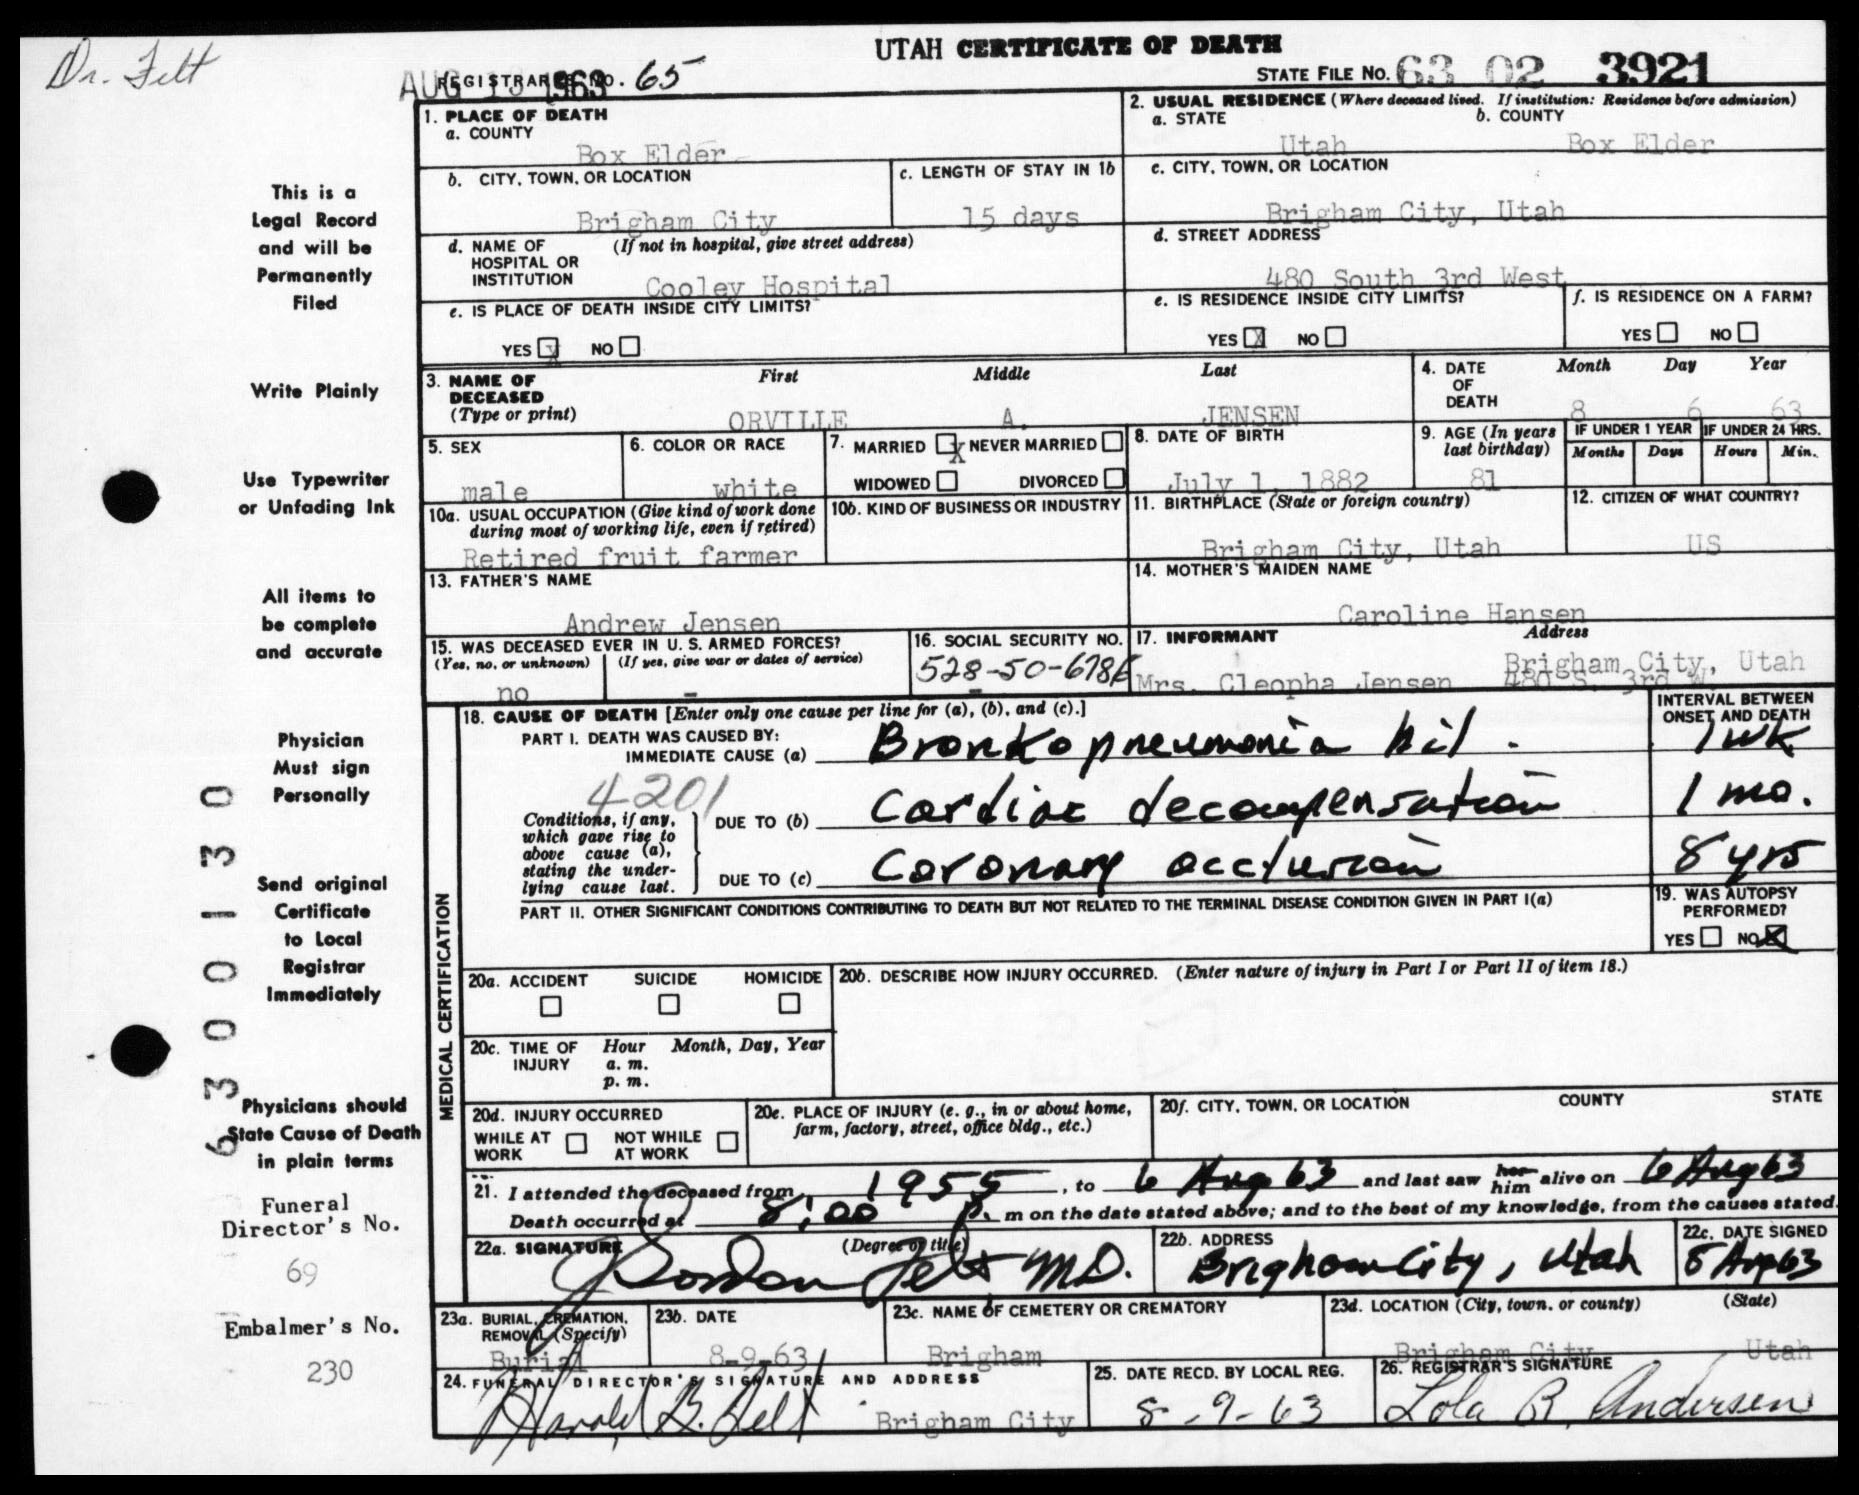 Dr. Felt
UTAH CERTIFICATE OF DEATH
AUG 13 1963
REGISTRAR'S NO. 65
STATE FILE NO. 63 02 3921
1. PLACE OF DEATH
a. COUNTY
Box Elder
2. USUAL RESIDENCE (Where deceased lived. If institution: Residence before admission)
a. STATE b. COUNTY
Utah Box Elder
b. CITY, TOWN, OR LOCATION
Brigham City
c. LENGTH OF STAY IN 1b
15 days
c. CITY, TOWN, OR LOCATION
Brigham City, Utah
d. NAME OF HOSPITAL OR INSTITUTION (If not in hospital, give street address)
Cooley Hospital
d. STREET ADDRESS
480 South 3rd West
e. IS PLACE OF DEATH INSIDE CITY LIMITS?
YES X NO
e. IS RESIDENCE INSIDE CITY LIMITS?
YES X NO
f. IS RESIDENCE ON A FARM?
YES NO
3. NAME OF DECEASED (Type or print)
First Middle Last
ORVILLE A. JENSEN
4. DATE OF DEATH
Month Day Year
8 6 63
5. SEX
male
6. COLOR OR RACE
white
7. MARRIED X NEVER MARRIED
WIDOWED DIVORCED
8. DATE OF BIRTH
July 1, 1882
9. AGE (In years last birthday)
81
IF UNDER 1 YEAR
Months Days
IF UNDER 24 HRS.
Hours Min.
10a. USUAL OCCUPATION (Give kind of work done during most of working life, even if retired)
Retired fruit farmer
10b. KIND OF BUSINESS OR INDUSTRY
11. BIRTHPLACE (State or foreign country)
Brigham City, Utah
12. CITIZEN OF WHAT COUNTRY?
US
13. FATHER'S NAME
Andrew Jensen
14. MOTHER'S MAIDEN NAME
Caroline Hansen
15. WAS DECEASED EVER IN U. S. ARMED FORCES?
(Yes, no, or unknown) (If yes, give war or dates of service)
no -
16. SOCIAL SECURITY NO.
17. INFORMANT Address
Mrs. Cleopha Jensen
Brigham City, Utah
480 S. 3rd W.
18. CAUSE OF DEATH [Enter only one cause per line for (a), (b), and (c).]
PART I. DEATH WAS CAUSED BY:
IMMEDIATE CAUSE (a) Bronkopneumonia bil.
INTERVAL BETWEEN ONSET AND DEATH
1 wk
4201
Conditions, if any, which gave rise to above cause (a), stating the underlying cause last.
DUE TO (b) Cardiac decompensation 1 mo.
DUE TO (c) Coronary occlusion 8 yrs
PART II. OTHER SIGNIFICANT CONDITIONS CONTRIBUTING TO DEATH BUT NOT RELATED TO THE TERMINAL DISEASE CONDITION GIVEN IN PART I(a)
19. WAS AUTOPSY PERFORMED?
YES NO X
MEDICAL CERTIFICATION
20a. ACCIDENT SUICIDE HOMICIDE
20b. DESCRIBE HOW INJURY OCCURRED. (Enter nature of injury in Part I or Part II of item 18.)
20c. TIME OF INJURY
Hour Month, Day, Year
a. m.
p. m.
20d. INJURY OCCURRED
WHILE AT WORK NOT WHILE AT WORK
20e. PLACE OF INJURY (e. g., in or about home, farm, factory, street, office bldg., etc.)
20f. CITY, TOWN, OR LOCATION COUNTY STATE
21. I attended the deceased from 1955, to 6 Aug 63 and last saw her him alive on 6 Aug 63
Death occurred at 8:00 P. m on the date stated above; and to the best of my knowledge, from the causes stated.
22a. SIGNATURE (Degree or title)
Gordon Felt M.D.
22b. ADDRESS
Brigham City, Utah
22c. DATE SIGNED
8 Aug 63
23a. BURIAL, CREMATION, REMOVAL (Specify)
Burial
23b. DATE
8-9-63
23c. NAME OF CEMETERY OR CREMATORY
Brigham
23d. LOCATION (City, town, or county) (State)
Brigham City Utah
24. FUNERAL DIRECTOR'S SIGNATURE AND ADDRESS
Harold B. Felt Brigham City
25. DATE RECD. BY LOCAL REG.
8-9-63
26. REGISTRAR'S SIGNATURE
Lola R. Andersen
This is a
Legal Record
and will be
Permanently
Filed
Write Plainly
Use Typewriter
or Unfading Ink
All items to
be complete
and accurate
Physician
Must sign
Personally
Send original
Certificate
to Local
Registrar
Immediately
Physicians should
State Cause of Death
in plain terms
Funeral
Director's No.
69
Embalmer's No.
230
6330 0130